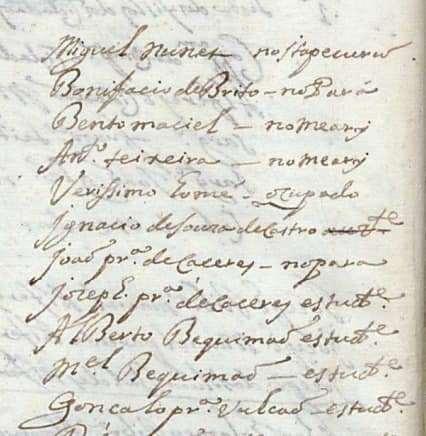 Miguel nunes - no itapecuru
Bonifacio de Brito - no Pará
Bento maciel - no meary
Antº. teixeira - no meary
Verissimo - ocupado
Ignacio de Souza de Castro
João prª. de Caceres - no para
Joseph prª. de Caceres estudte.
Alberto Bequimaõ estudte.
Mel Bequimaõ - estudte.
Goncalo prª. - estudte.